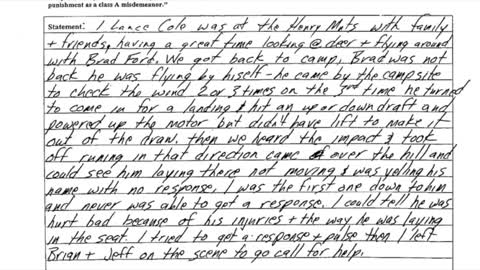 punishment as a class A misdemeanor."
Statement: I Lance Colo was at the Henry Mots with family
+ friends, having a great time looking @ deer + flying around
with Brad Fork. We got back to camp, Brad was not
back he was flying by hiself - he came by the campsite
to check the wind 2 or 3 times on the 3rd time he turned
to come in for a landing & hit an up or down draft and
powered up the motor but didn't have lift to make it
out of the draw. then we heard the impact & took
off runing in that direction came over the hill and
could see him laying there not moving & was yelling his
name with no response, I was the first one down to him
and never was able to get a response. I could tell he was
hurt bad because of his injuries + the way he was laying
in the seat. I tried to get a response + pulse then I left
Brian + Jeff on the scene to go call for help.